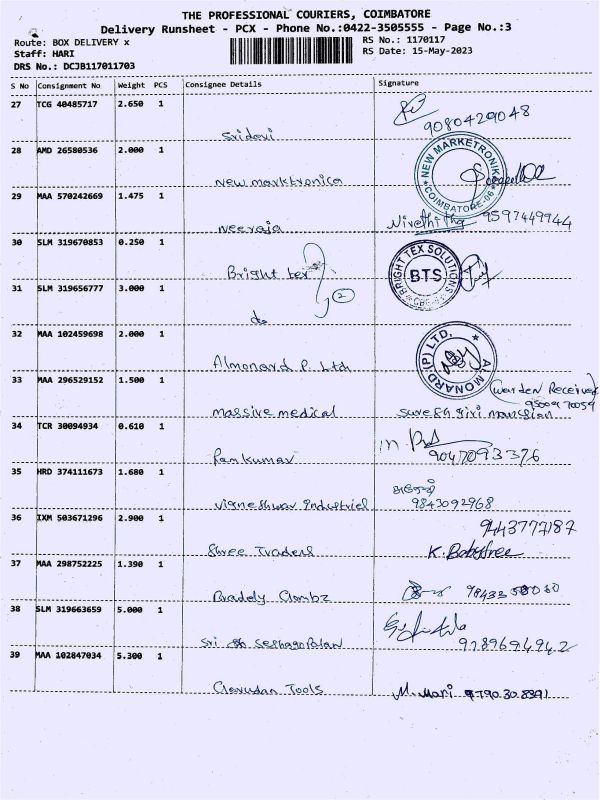 THE PROFESSIONAL COURIERS, COIMBATORE
Delivery Runsheet - PCX - Phone No.:0422-3505555 - Page No.:3
Route: BOX DELIVERY x
RS No.: 1170117
Staff: HARI
RS Date: 15-May-2023
DRS No.: DCJB117011703
S No Consignment No Weight PCS Consignee Details Signature
27 TCG 40485717 2.650 1
9080429048
Sridevi
28 AMD 26580536 2.000 1
NEW MARKETRONIKA
COIMBATORE-06
New marktronica
29 MAA 570242669 1.475 1
Neeraja Nivethitha 9597449944
30 SLM 319670853 0.250 1
BRIGHT TEX SOLUTIONS
BTS
Bright tex
2
31 SLM 319656777 3.000 1
do
32 MAA 102459698 2.000 1
ALMONARD (P) LTD.
Almonard P. Ltd
33 MAA 296529152 1.500 1
(warden Received
massive medical suresh giri manssion
34 TCR 30094934 0.610 1
9047093376
Ramkumar
35 HRD 374111673 1.680 1
9843092968
Vigneshwar Industrial
36 IXM 503671296 2.900 1
9443777187
Shree Traders
37 MAA 298752225 1.390 1
38 SLM 319663659 5.000 1
9789694942
39 MAA 102847034 5.300 1
Tools M. Mari 9790308391